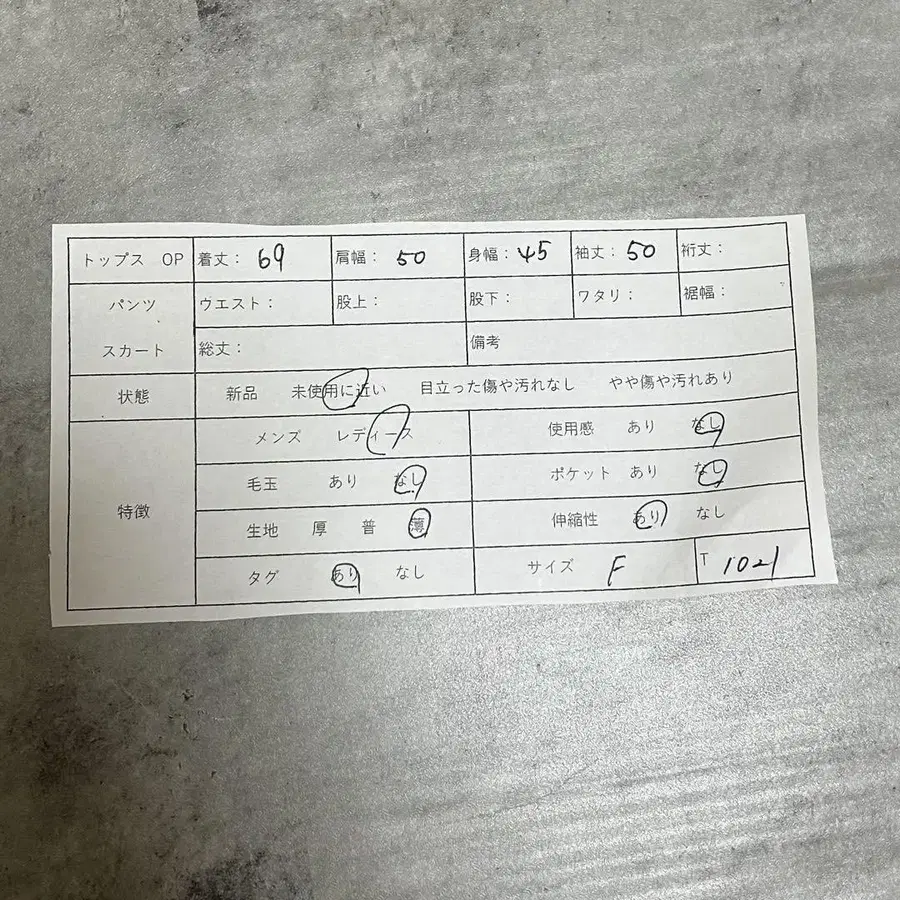 トップス OP 着丈： 69 肩幅： 50 身幅： 45 袖丈： 50 裄丈：
パンツ ウエスト： 股上： 股下： ワタリ： 裾幅：
スカート 総丈： 備考
状態 新品 未使用に近い 目立った傷や汚れなし やや傷や汚れあり
メンズ レディース 使用感 あり なし
毛玉 あり なし ポケット あり なし
特徴
生地 厚 普 薄 伸縮性 あり なし
タグ あり なし サイズ F T 1021